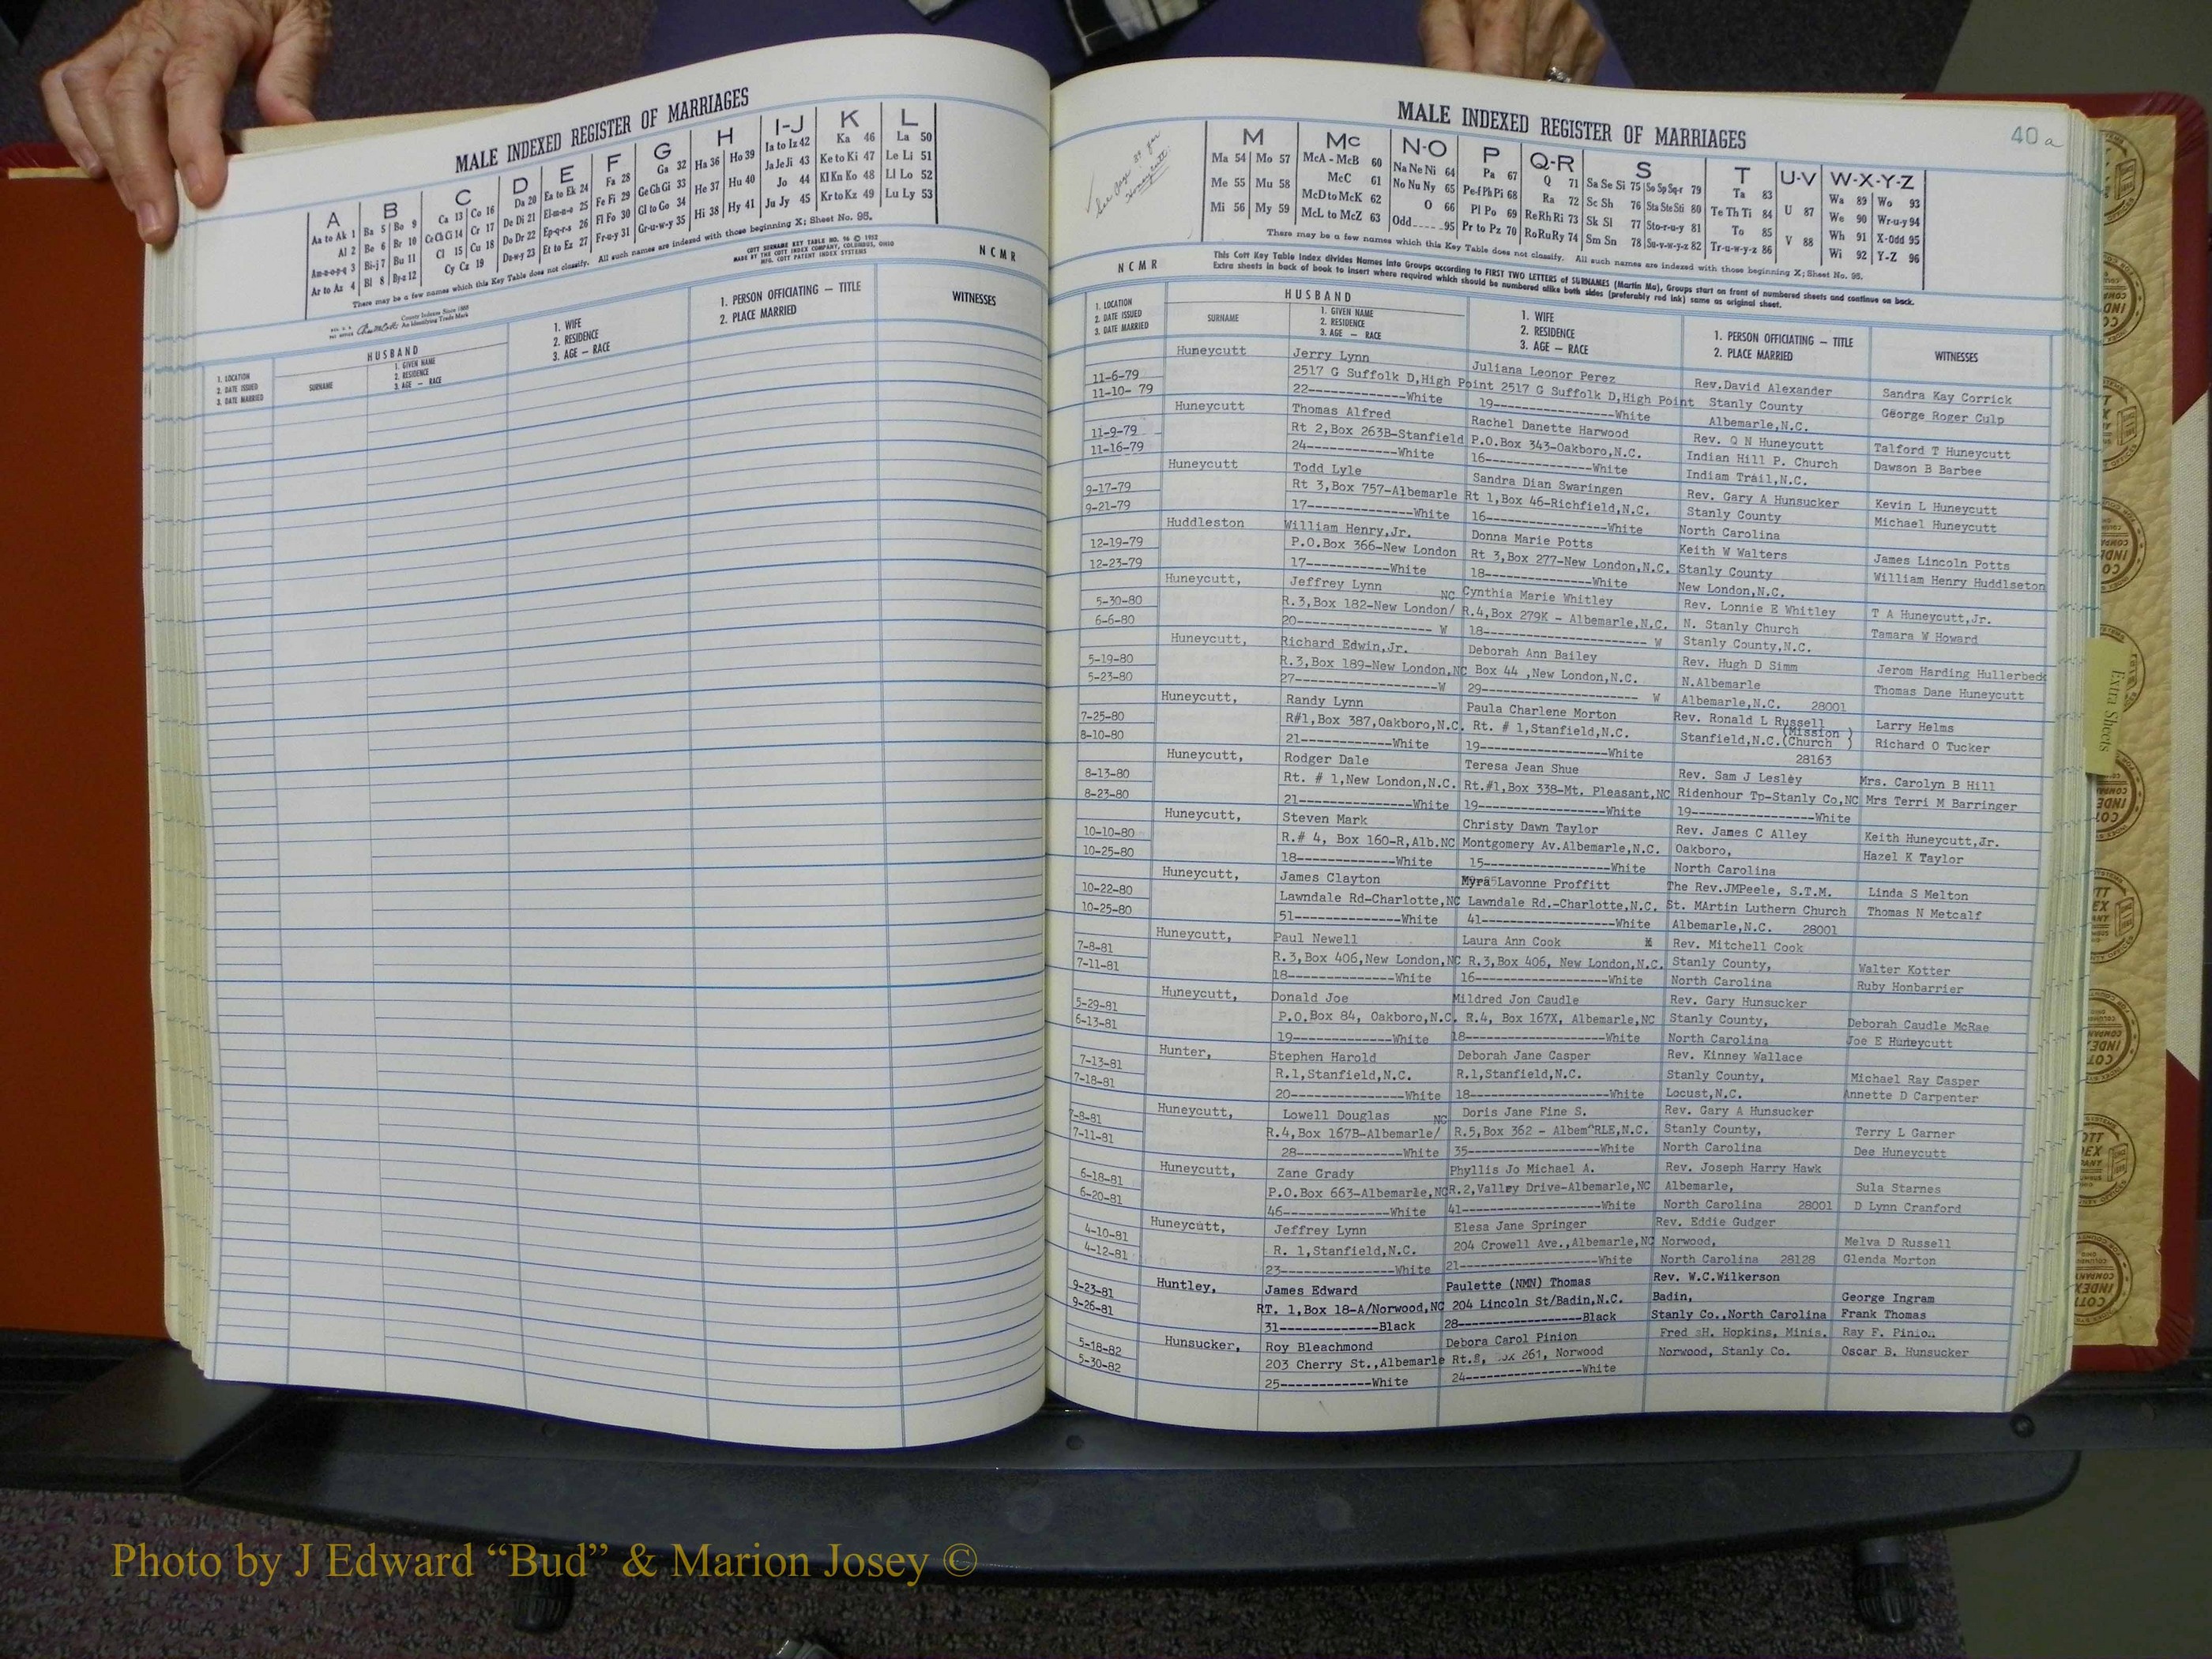 MALE INDEXED REGISTER OF MARRIAGES
A B C D E F G H I-J K L
Aa to Ak 1 Ba 5 Bo 9 Ca 13 Co 16 Da 20 Ea to Ek 24 Fa 28 Ga 32 Ha 36 Ho 39 Ia to Iz 42 Ka 46 La 50
Al 2 Be 6 Br 10 Ce Ch Ci 14 Cr 17 De Di 21 El-m-n-o 25 Fe Fi 29 Ge Gh Gi 33 He 37 Hu 40 Ja Je Ji 43 Ke to Ki 47 Le Li 51
Am-n-o-p-q 3 Bi-j 7 Bu 11 Cl 15 Cu 18 Do Dr 22 Ep-q-r-s 26 Fl Fo 30 Gl to Go 34 Hi 38 Hy 41 Jo 44 Kl Kn Ko 48 Ll Lo 52
Ar to Az 4 Bl 8 By-z 12 Cy Cz 19 Du-w-y 23 Et to Ez 27 Fr-u-y 31 Gr-u-w-y 35 Ju Jy 45 Kr to Kz 49 Lu Ly 53
There may be a few names which this Key Table does not classify. All such names are indexed with those beginning X; Sheet No. 95.
COTT SURNAME KEY TABLE NO. 96 © 1952
MADE BY THE COTT INDEX COMPANY, COLUMBUS, OHIO
MFG. COTT PATENT INDEX SYSTEMS
County Indexes Since 1888
An Identifying Trade Mark
N C M R
1. LOCATION
2. DATE ISSUED
3. DATE MARRIED
HUSBAND
SURNAME
1. GIVEN NAME
2. RESIDENCE
3. AGE — RACE
1. WIFE
2. RESIDENCE
3. AGE — RACE
1. PERSON OFFICIATING — TITLE
2. PLACE MARRIED
WITNESSES
MALE INDEXED REGISTER OF MARRIAGES
40 a
See Page
Honeycutt
M Mc N-O P Q-R S T U-V W-X-Y-Z
Ma 54 Mo 57 McA - McB 60 Na Ne Ni 64 Pa 67 Q 71 Sa Se Si 75 So Sp Sq-r 79 Ta 83 U 87 Wa 89 Wo 93
Me 55 Mu 58 McC 61 No Nu Ny 65 Pe-f Ph Pi 68 Ra 72 Sc Sh 76 Sta Ste Sti 80 Te Th Ti 84 V 88 We 90 Wr-u-y 94
Mi 56 My 59 McD to McK 62 O 66 Pl Po 69 Re Rh Ri 73 Sk Sl 77 Sto-r-u-y 81 To 85 Wh 91 X-Odd 95
McL to McZ 63 Odd 95 Pr to Pz 70 Ro Ru Ry 74 Sm Sn 78 Su-v-w-y-z 82 Tr-u-w-y-z 86 Wi 92 Y-Z 96
There may be a few names which this Key Table does not classify. All such names are indexed with those beginning X; Sheet No. 95.
This Cott Key Table Index divides Names into Groups according to FIRST TWO LETTERS of SURNAMES (Martin Ma), Groups start on front of numbered sheets and continue on back.
Extra sheets in back of book to insert where required which should be numbered alike both sides (preferably red ink) same as original sheet.
N C M R
1. LOCATION
2. DATE ISSUED
3. DATE MARRIED
HUSBAND
SURNAME
1. GIVEN NAME
2. RESIDENCE
3. AGE — RACE
1. WIFE
2. RESIDENCE
3. AGE — RACE
1. PERSON OFFICIATING — TITLE
2. PLACE MARRIED
WITNESSES
Huneycutt Jerry Lynn Juliana Leonor Perez Rev.David Alexander Sandra Kay Corrick
11-6-79 2517 G Suffolk D,High Point 2517 G Suffolk D,High Point Stanly County George Roger Culp
11-10-79 22------------White 19---------------White Albemarle,N.C.
Huneycutt Thomas Alfred Rachel Danette Harwood Rev. Q N Huneycutt Talford T Huneycutt
11-9-79 Rt 2,Box 263B-Stanfield P.O.Box 343-Oakboro,N.C. Indian Hill P. Church Dawson B Barbee
11-16-79 24------------White 16--------------White Indiam Trail,N.C.
Huneycutt Todd Lyle Sandra Dian Swaringen Rev. Gary A Hunsucker Kevin L Huneycutt
9-17-79 Rt 3,Box 757-Albemarle Rt 1,Box 46-Richfield,N.C. Stanly County Michael Huneycutt
9-21-79 17-------------White 16---------------White North Carolina
Huddleston William Henry,Jr. Donna Marie Potts Keith W Walters James Lincoln Potts
12-19-79 P.O.Box 366-New London Rt 3,Box 277-New London,N.C. Stanly County William Henry Huddlseton
12-23-79 17------------White 18--------------White New London,N.C.
Huneycutt, Jeffrey Lynn Cynthia Marie Whitley Rev. Lonnie E Whitley T A Huneycutt,Jr.
5-30-80 R.3,Box 182-New London/ NC R.4,Box 279K - Albemarle,N.C. N. Stanly Church Tamara W Howard
6-6-80 20------------------ W 18-------------------- W Stanly County,N.C.
Huneycutt, Richard Edwin,Jr. Deborah Ann Bailey Rev. Hugh D Simm Jerom Harding Hullerbeck
5-19-80 R.3,Box 189-New London,NC Box 44 ,New London,N.C. N.Albemarle Thomas Dane Huneycutt
5-23-80 27------------------W 29------------------- W Albemarle,N.C. 28001
Huneycutt, Randy Lynn Paula Charlene Morton Rev. Ronald L Russell Larry Helms
7-25-80 R#1,Box 387,Oakboro,N.C. Rt. # 1,Stanfield,N.C. Stanfield,N.C.(Mission) (Church ) Richard O Tucker
8-10-80 21------------White 19-----------------White 28163
Huneycutt, Rodger Dale Teresa Jean Shue Rev. Sam J Lesley Mrs. Carolyn B Hill
8-13-80 Rt. # 1,New London,N.C. Rt.#1,Box 338-Mt. Pleasant,NC Ridenhour Tp-Stanly Co,NC Mrs Terri M Barringer
8-23-80 21--------------White 19-----------------White 19-----------------White
Huneycutt, Steven Mark Christy Dawn Taylor Rev. James C Alley Keith Huneycutt,Jr.
10-10-80 R.# 4, Box 160-R,Alb.NC Montgomery Av.Albemarle,N.C. Oakboro, Hazel K Taylor
10-25-80 18-------------White 15-----------------White North Carolina
Huneycutt, James Clayton Myra Lavonne Proffitt The Rev.JMPeele, S.T.M. Linda S Melton
10-22-80 Lawndale Rd-Charlotte,NC Lawndale Rd.-Charlotte,N.C. St. MArtin Luthern Church Thomas N Metcalf
10-25-80 51--------------White 41-----------------White Albemarle,N.C. 28001
Huneycutt, Paul Newell Laura Ann Cook Rev. Mitchell Cook
7-8-81 R.3,Box 406,New London,NC R.3,Box 406, New London,N.C. Stanly County, Walter Kotter
7-11-81 18--------------White 16-----------------White North Carolina Ruby Honbarrier
Huneycutt, Donald Joe Mildred Jon Caudle Rev. Gary Hunsucker
5-29-81 P.O.Box 84, Oakboro,N.C. R.4, Box 167X, Albemarle,NC Stanly County, Deborah Caudle McRae
6-13-81 19--------------White 18-----------------White North Carolina Joe E Huneycutt
Hunter, Stephen Harold Deborah Jane Casper Rev. Kinney Wallace
7-13-81 R.1,Stanfield,N.C. R.1,Stanfield,N.C. Stanly County, Michael Ray Casper
7-18-81 20--------------White 18-----------------White Locust,N.C. Annette D Carpenter
Huneycutt, Lowell Douglas Doris Jane Fine S. Rev. Gary A Hunsucker
7-8-81 R.4,Box 167B-Albemarle/ NC R.5,Box 362 - Albem^RLE,N.C. Stanly County, Terry L Garner
7-11-81 28--------------White 35-----------------White North Carolina Dee Huneycutt
Huneycutt, Zane Grady Phyllis Jo Michael A. Rev. Joseph Harry Hawk
6-18-81 P.O.Box 663-Albemarle,NC R.2,Valley Drive-Albemarle,NC Albemarle, Sula Starnes
6-20-81 46--------------White 41-----------------White North Carolina 28001 D Lynn Cranford
Huneycutt, Jeffrey Lynn Elesa Jane Springer Rev. Eddie Gudger
4-10-81 R. 1,Stanfield,N.C. 204 Crowell Ave.,Albemarle,NC Norwood, Melva D Russell
4-12-81 23--------------White 21-----------------White North Carolina 28128 Glenda Morton
Huntley, James Edward Paulette (NMN) Thomas Rev. W.C.Wilkerson
9-23-81 RT. 1,Box 18-A/Norwood,NC 204 Lincoln St/Badin,N.C. Badin, George Ingram
9-26-81 31--------------Black 28-----------------Black Stanly Co.,North Carolina Frank Thomas
Hunsucker, Roy Bleachmond Debora Carol Pinion Fred H. Hopkins, Minis. Ray F. Pinion
5-18-82 203 Cherry St.,Albemarle Rt.8, 261, Norwood Norwood, Stanly Co. Oscar B. Hunsucker
5-30-82 25------------White 24---------------White
Extra Sheets
Photo by J Edward “Bud” & Marion Josey ©